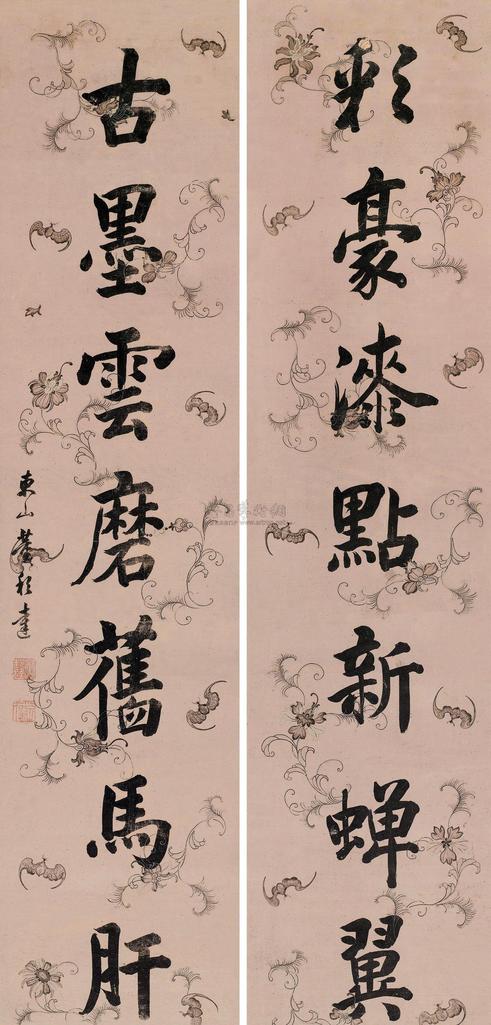 彩豪漆點新蟬翼
古墨雲磨舊馬肝
東山